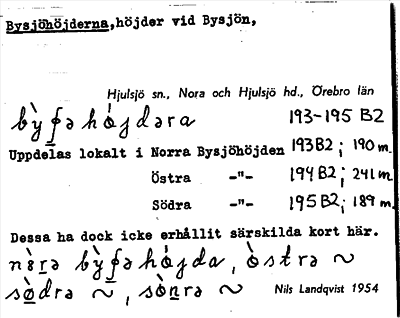 Bysjöhöjderna, höjder vid Bysjön,
Hjulsjö sn., Nora och Hjulsjö hd., Örebro län
193-195 B2
Uppdelas lokalt i Norra Bysjöhöjden 193B2; 190 m.
Östra -"- 194B2; 241 m.
Södra -"- 195B2; 189 m.
Dessa ha dock icke erhållit särskilda kort här.
Nils Landqvist 1954